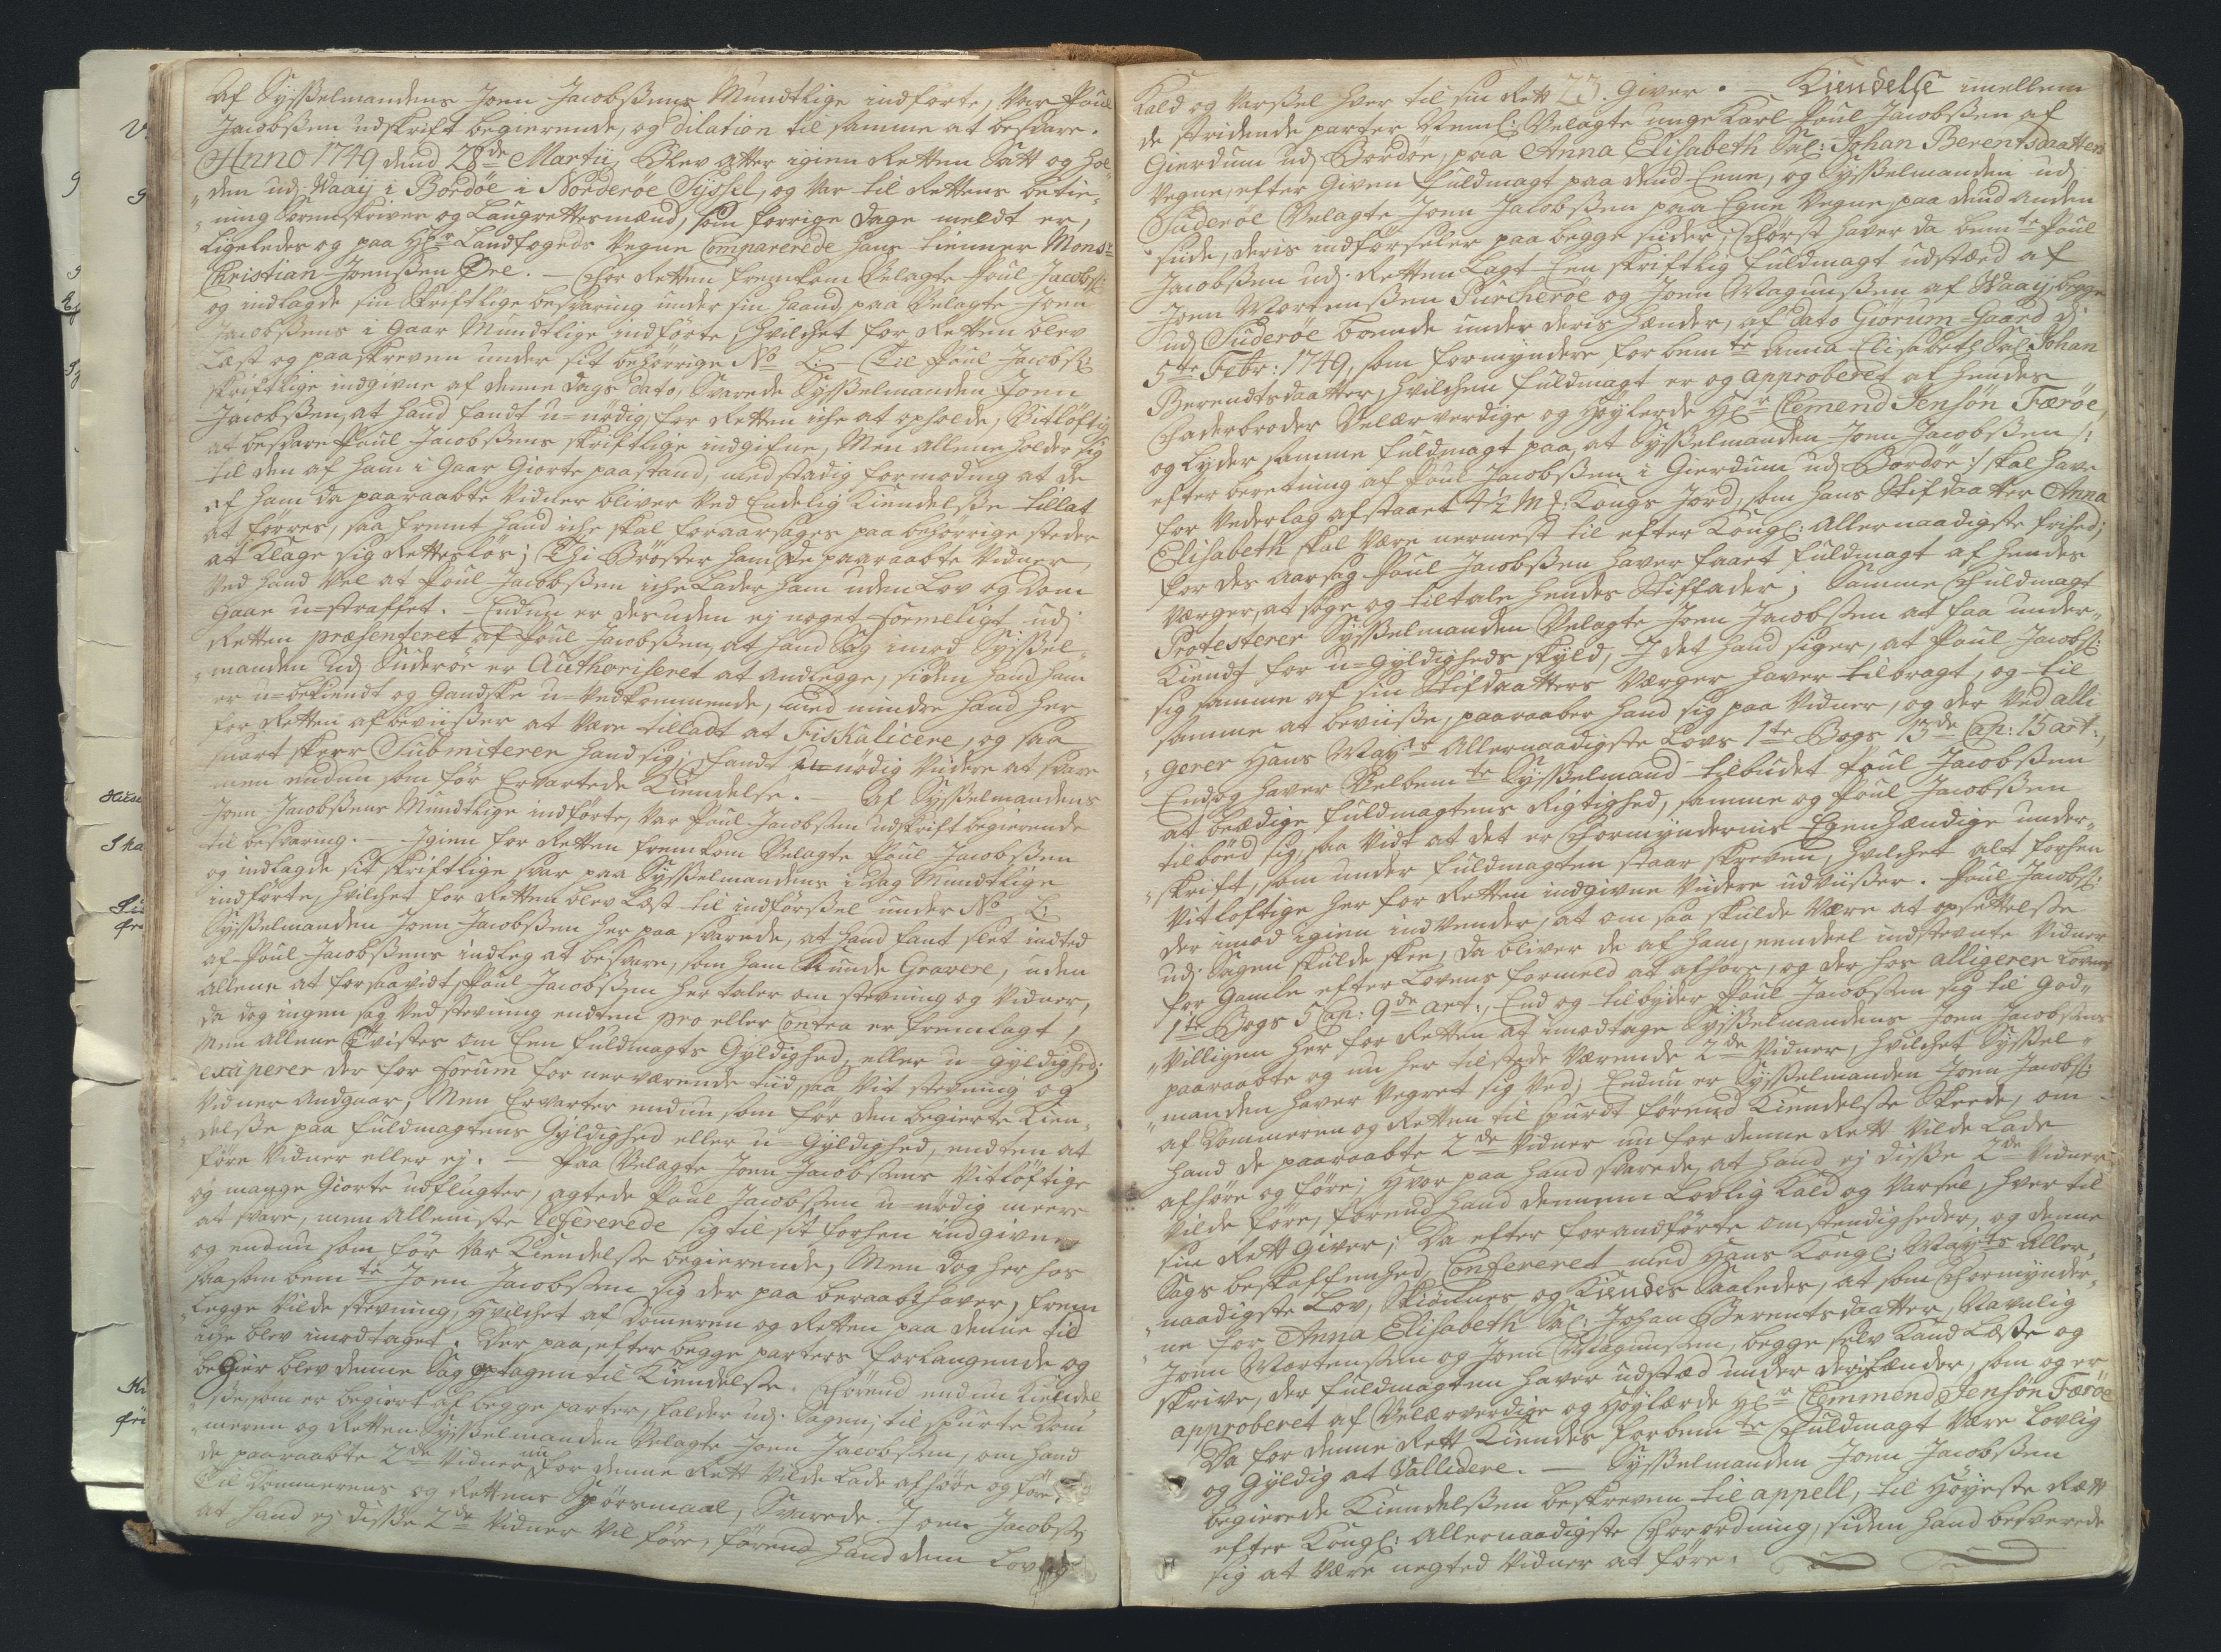 Af Sysselmandens Joen Jacobssens Mundtlige indförte, Var Poul
Jacobssen udskrift begierende, og dilation til samme at besvare.
Anno 1749 dend 28de Martii, Blev atter igien Retten Satt og hol-
den udj Waaij i Bordöe i Norderöe Syssel, og Var til Rettens betie-
ning Sorenskriver og Laugrettesmænd, som forrige dage meldt er,
ligeledes og paa Hr Landfogeds Vegne Comparerede hans tienner Monsr
Christian Joenssen Öre. - For Retten fremkom Velagte Poul Jacobss:
og indlagde sin Skriftlige besvaring under sin haand, paa Velagte Joen
Jacobssens i Gaar Mundtlige indförte, hvilchet for Retten blev
Læst og paaskreven under sit behörrige No L: - Til Poul Jacobss:
skriftlige indgivne af denne dags dato, Svarede Sysselmanden Joen
Jacobssen, at hand fandt u-nödig, for Retten iche at opholde, Vitlöftig
at besvare Poul Jacobssens skriftlige indgifne, Men allene holder sig
til den af ham i Gaar Giorte paastand, med stadig formoding at de
af ham da paaraabte Vidner bliver Ved Endelig Kiendelse tillat
at förres, saa fremt hand iche skal foraarsages paa behörrige steder
at klage sig Retteslös; Thi Bröster ham de paaraabte Vidner,
Ved hand Vel at Poul Jacobssen iche Lader ham uden Lov og Dom
Gaae u-straffet. - Endnu er desuden ej noget formeligt udj
Retten præsenteret af Poul Jacobssen, at hand Sag imod Syssel-
manden udj Suderöe er Authoriseret at andlegge, siden hand ham
er u-bekiendt og Gandske u-Vedkommende, med mindre hand her
for Retten afbeviisser at Være tilladt at Fiskalicere, og saa
snart skeer Submiterer hand sig; fandt u-nödig Viidere at svare
men endnu som för Ervartede Kiendelse. - Af Sysselmandens
Joen Jacobssens Mundtlige indförte, Var Poul Jacobssen udskrift begierende
til besvaring. - Igien for Retten fremkom Velagte Poul Jacobssen
og indlagde sit skriftlige svar paa Sysselmandens i Dag Mundtlige
indförte, hvilchet for Retten blev Læst til indförssel under No L:
Sysselmanden Joen Jacobssen her paa svarede, at hand fant slet indted
af Poul Jacobssens indleg at besvare, som ham Kunde Gravere, uden
allene at forsaavidt Poul Jacobssen her taler om stevning og Vidner,
da dog ingen sag Ved stevning endten pro eller Contra er fremlagt,
Men allene Tvistes om Een fuldmagts Gyldighed, eller u-gyldighed;
exciperer der for Forum for nerværende tiid, saa Vit stevning og
Vidner andgaar, Men Ervarter endnu som för den begierte Kien-
delse paa fuldmagtens Gyldighed eller u-Gyldighed, endten at
före Vidner eller ej. - Paa Velagte Joen Jacobssens Vitlöftige
og mange Giorte udflugter, agtede Poul Jacobssen u-nödig meere
at svare, men alleniste Refererede sig til sit forhen indgivne
og endnu som för Var Kiendelse begierende, Men dog her hos
saasom bemte Joen Jacobssen sig der paa beraabt haver, frem
Legge Vilde stevning, hvilchet af Domeren og Retten paa denne tid
iche blev imodtaget. Der paa, efter begge parters forlangende og
begier blev denne Sag optagen til Kiendelse. Förend endnu Kiendel-
se, som er begiert af begge parter, falder udj Sagen, til spurte Dom-
meren og Retten Sysselmanden Velagte Joen Jacobssen, om hand
de paaraabte 2de Vidner nu for denne Rett Vilde Lade afhöre og före,
Til Dommerens og Rettens Spörsmaal, Svarede Joen Jacobss:
at hand ej disse 2de Vidner Vil före, förend hand dem Lovlig
Kald og Varssel hver til sin Rett 23. Giver. - Kiendelse imellem
de stridende parter Neml: Velagte unge Karl Poul Jacobssen af
Gierdum udj Bordöe, paa Anna Elisabeth Sal: Johan Berentsdaatters
Vegne, efter Given fuldmagt paa dend Eene, og Sysselmanden udj
Suderöe Velagte Joen Jacobssen paa Egne Vegne, paa dend anden
side, deris indförseler paa begge siider; Först haver da bemte Poul
Jacobssen udj Retten Lagt Een skriftlig fuldmagt udstæd af
Joen Mortenssen Purcheröe og Joen Magnussen af Waaij, begge
udj Suderöe boende under deris hænder, af dato Giörum Gaard d.
5te Febr: 1749, som formyndere for bemte Anna Elisabeth Sal: Johan
Berendtsdaatter, hvilchen fuldmagt er og approberet af hendes
Faderbroder Velærværdige og Höylerde Hr Clemend Jensön Færöe,
og Lyder samme fuldmagt paa, at Sysselmanden Joen Jacobssen /:
efter beretning af Poul Jacobssen i Gierdum udj Bordöe :/ skal have
for Vederlag afstaaet 4½ Mk: Kongs Jord, som hans Stifdaatter Anna
Elisabeth skal Være nermest til efter Kongl: Allernaadigste frihed;
for des aarsag Poul Jacobssen haver faaet fuldmagt af hendes
Værger, at söge og tiltale hendes Stiffader; Samme Fuldmagt
Protesterer Sysselmanden Velagte Joen Jacobssen at faa under-
Kiendt for u-Gyldigheds skyld, I det hand siger, at Poul Jacobss:
sig samme af sin Stifdaatters Værger haver tilbragt, og til
samme at beviisse, paaraaber hand sig paa Vidner, og der Ved alli-
gerer Hans Mayts Allernaadigste Lovs 1te Bogs 13de Cap: 15 art:,
Endog haver Velbemte Sysselmand tilbudet Poul Jacobssen
at beædige fuldmagtens Rigtighed, samme og Poul Jacobssen
tilböed sig, saa Vidt at det er Formyndernis Egenhændige under-
skrift, som under fuldmagten staar skreven, hvilchet alt forhen
Vitlöftige her for Retten indgivne Viidere udviisser. Poul Jacobss:
der imod igien indvender, at om saa skulde Være at opsettelse
udj Sagen skulde skee, da bliver de af ham, eendeel indstevnte Vidner
for Gamle efter Lovens formeld at afhöre, og der hos alligerer Lovens
1te Bogs 5 Cap: 9de art:, End og tilbyder Poul Jacobssen sig til God-
Villigen her for Retten at imodtage Sysselmandens Joen Jacobssens
paaraabte og nu her tilstede Værende 2de Vidner, hvilchet Syssel-
manden haver Vegret sig Ved; Endnu er Sysselmanden Joen Jacobss:
af Dommeren og Retten til spurdt förend Kiendelse Skeede, om
hand de paaraabte 2de Vidner nu for denne Rett Vilde Lade
afhöre og före; Hvor paa hand svarede, at hand ej disse 2de Vidner
Vilde före, förend hand dennem Lovlig Kald og Varsel, hver til
sin Rett Giver; Da efter forandförte omstendigheder, og denne
Sags beskaffenhed, Confereret med Hans Kongl: Mayts Aller-
naadigste Lov, Skiönnes og Kiendes Saaledes, at som Formynder-
ne for Anna Elisabeth Sal: Johan Berentsdaatter, Navnlig
Joen Mortenssen og Joen Magnussen, begge selv Kand Læsse og
skrive, der fuldmagten haver udstæd under deris hænder, som og er
approberet af Velærværdige og Höylærde Hr Clemmend Jensön Færöe
Da for denne Rett Kiendes forbemte Fuldmagt Være Lovlig
og Gyldig at Vallidere. - Sysselmanden Joen Jacobssen
begierede Kiendelssen beskreven til appell, til Höyeste Rett
efter Kongl: Allernaadigste Forordning, siden hand besverede
sig at Være negted Vidner at före.